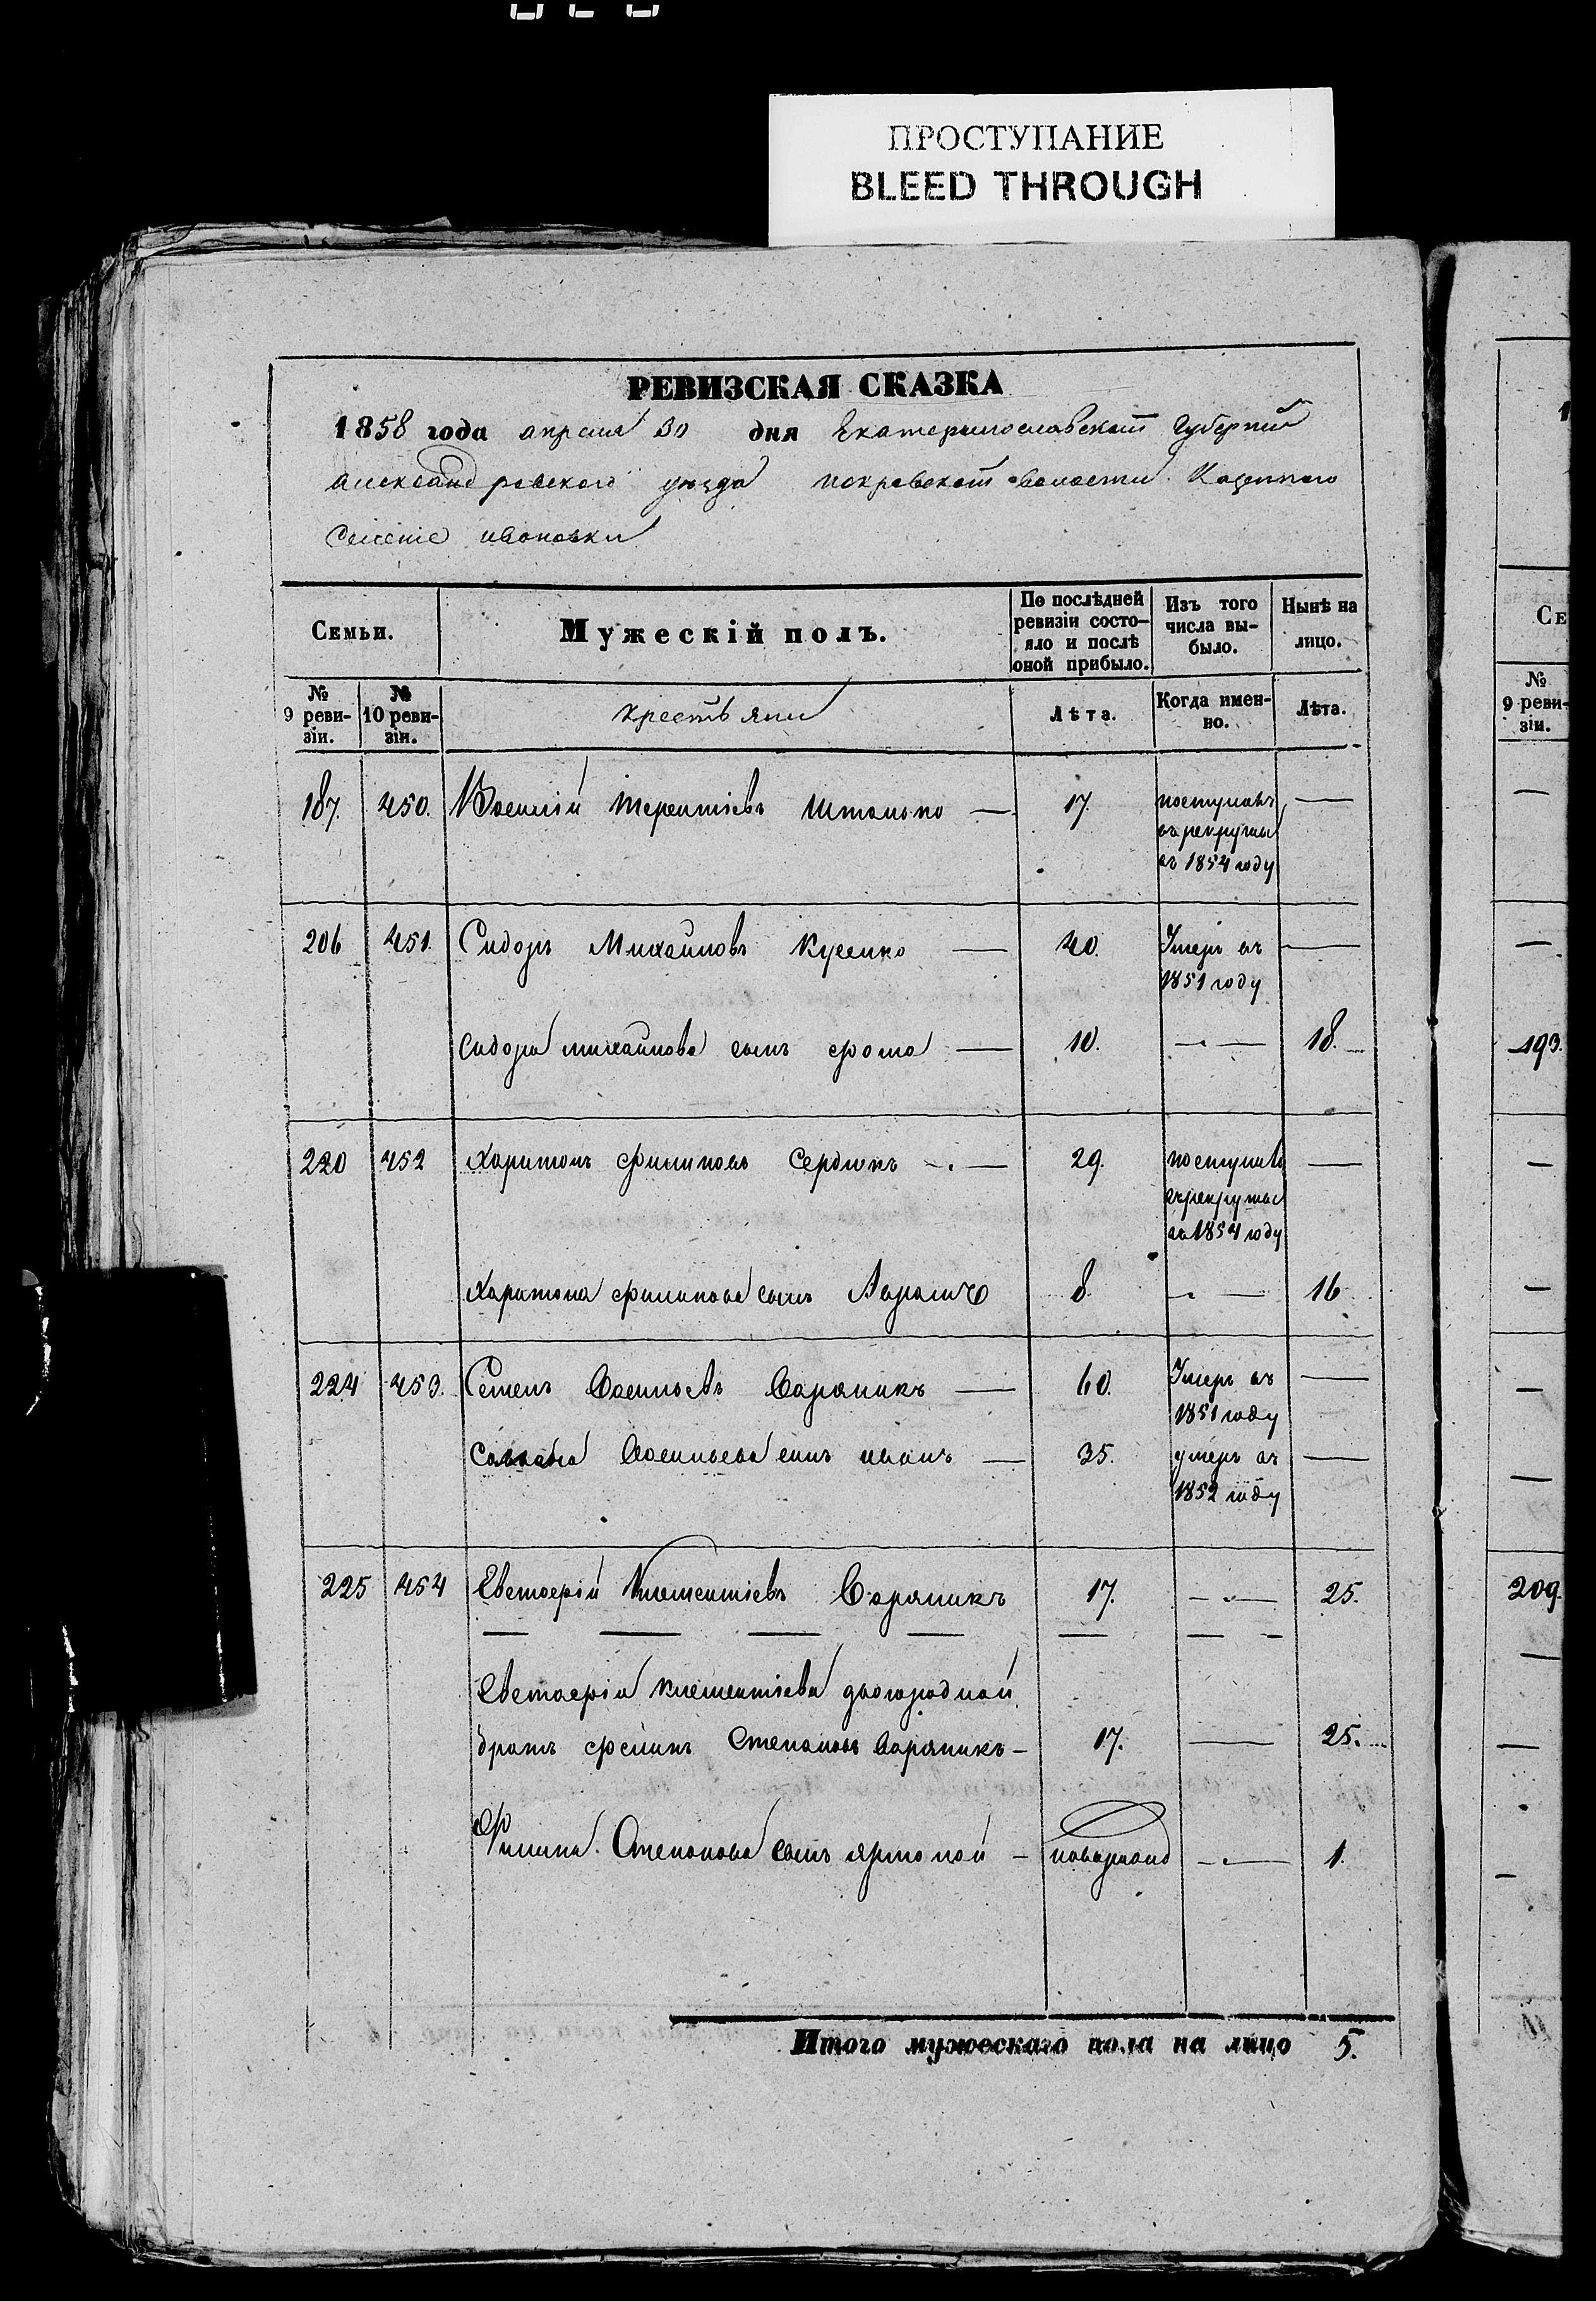 ПРОСТУПАНИЕ
BLEED THROUGH
РЕВИЗСКАЯ СКАЗКА
1858 года апреля 30 дня Екатеринославской Губернии
Александровского уезда покровской волости Казенного
Селение ивановки
Семьи.
Мужескій полъ.
По послѣдней ревизіи состо-яло и послѣ оной прибыло.
Изъ того числа вы-было.
Нынѣ на лицо.
№ 9 реви-зіи.
№ 10 реви-зіи.
крестьяни
Лѣта.
Когда имен-но.
Лѣта.
187. 450. Василій Терентіевъ 17. поступилъ —
въ рекруты
въ 1854 году
206 451. Сидоръ Михайловъ 40. Умеръ въ —
1851 году
Сидора михайлова сынъ фома — 10. — 18.
220 452 Харитонъ филиповъ Сердюкъ — 29. поступилъ —
въ рекруты
въ 1854 году
Харитона филипова сынъ 8. — 16
224 453. Семенъ Васильевъ Варяникъ — 60. Умеръ въ —
1851 году
Васильева сынъ иванъ — 35. умеръ въ —
1852 году
225 454 Евстаерій Клементіевъ Варяникъ 17. — 25.
Евстаерія клементіева двогородной
братъ Степановъ Варяникъ — 17. — 25.
Филипа Степанова сынъ ярмолай — 1.
Итого мужескаго пола на лицо 5.
№ 9 реви-зіи.
193.
209.